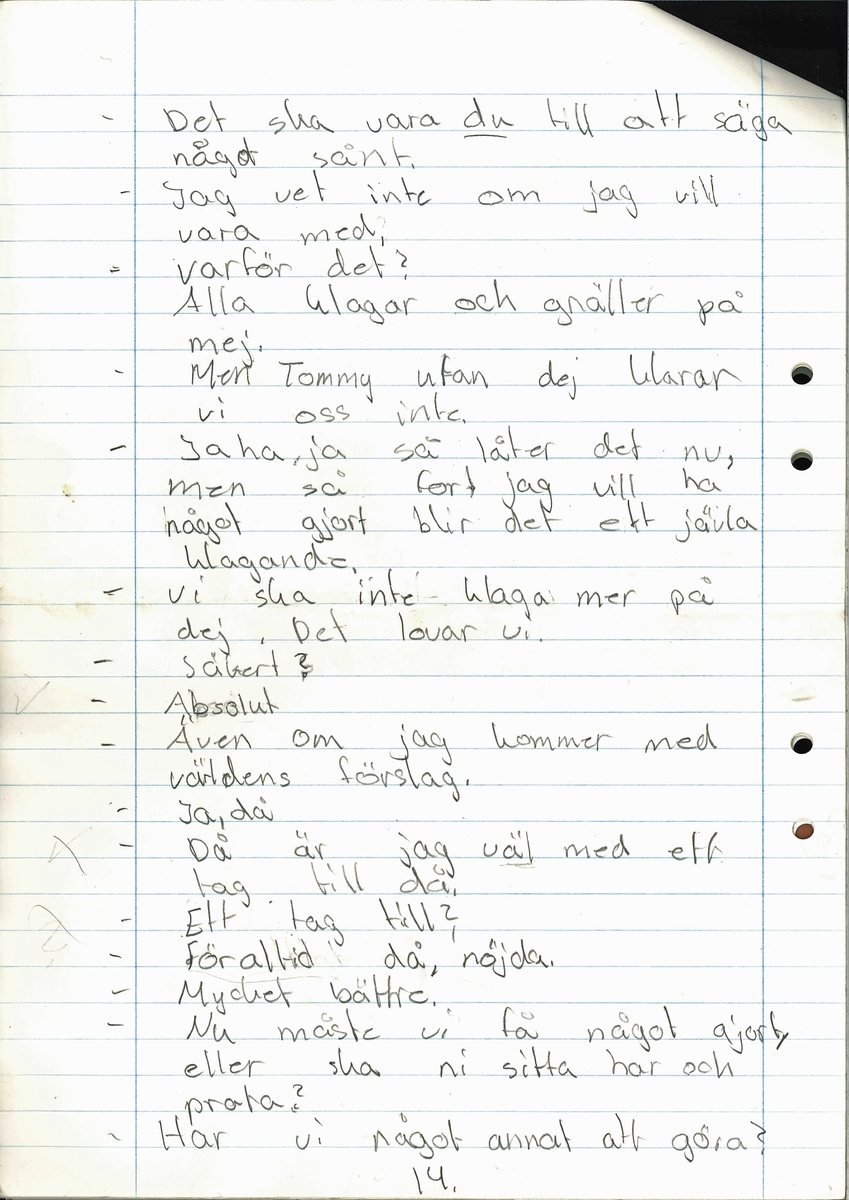 - Det ska vara du till att säga
något sånt.
- Jag vet inte om jag vill
vara med,
= varför det?
Alla klagar och gnäller på
mej.
- Men Tommy utan dej klarar
vi oss inte.
- Jaha, ja så låter det nu,
men så fort jag vill ha
något gjort blir det ett jävla
klagande.
- vi ska inte klaga mer på
dej, Det lovar vi.
- Säkert?
- Absolut
- Även om jag kommer med
världens förslag.
- Ja, då
- Då är jag väl med ett
tag till då.
- Ett tag till?
- föralltid då, nöjda.
- Mycket bättre.
- Nu måste vi få något gjort,
eller ska ni sitta har och
prata?
- Har vi något annat att göra?
14.